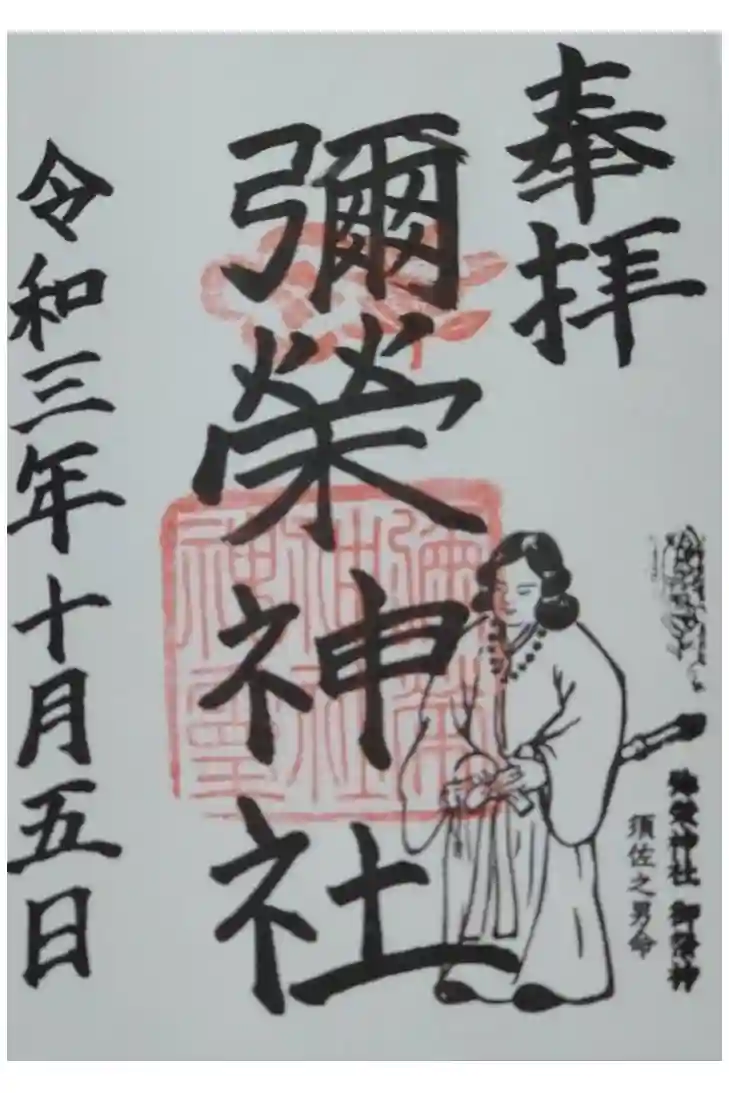 奉拝
彌榮神社
令和三年十月五日
弥榮神社 御祭神
須佐之男命